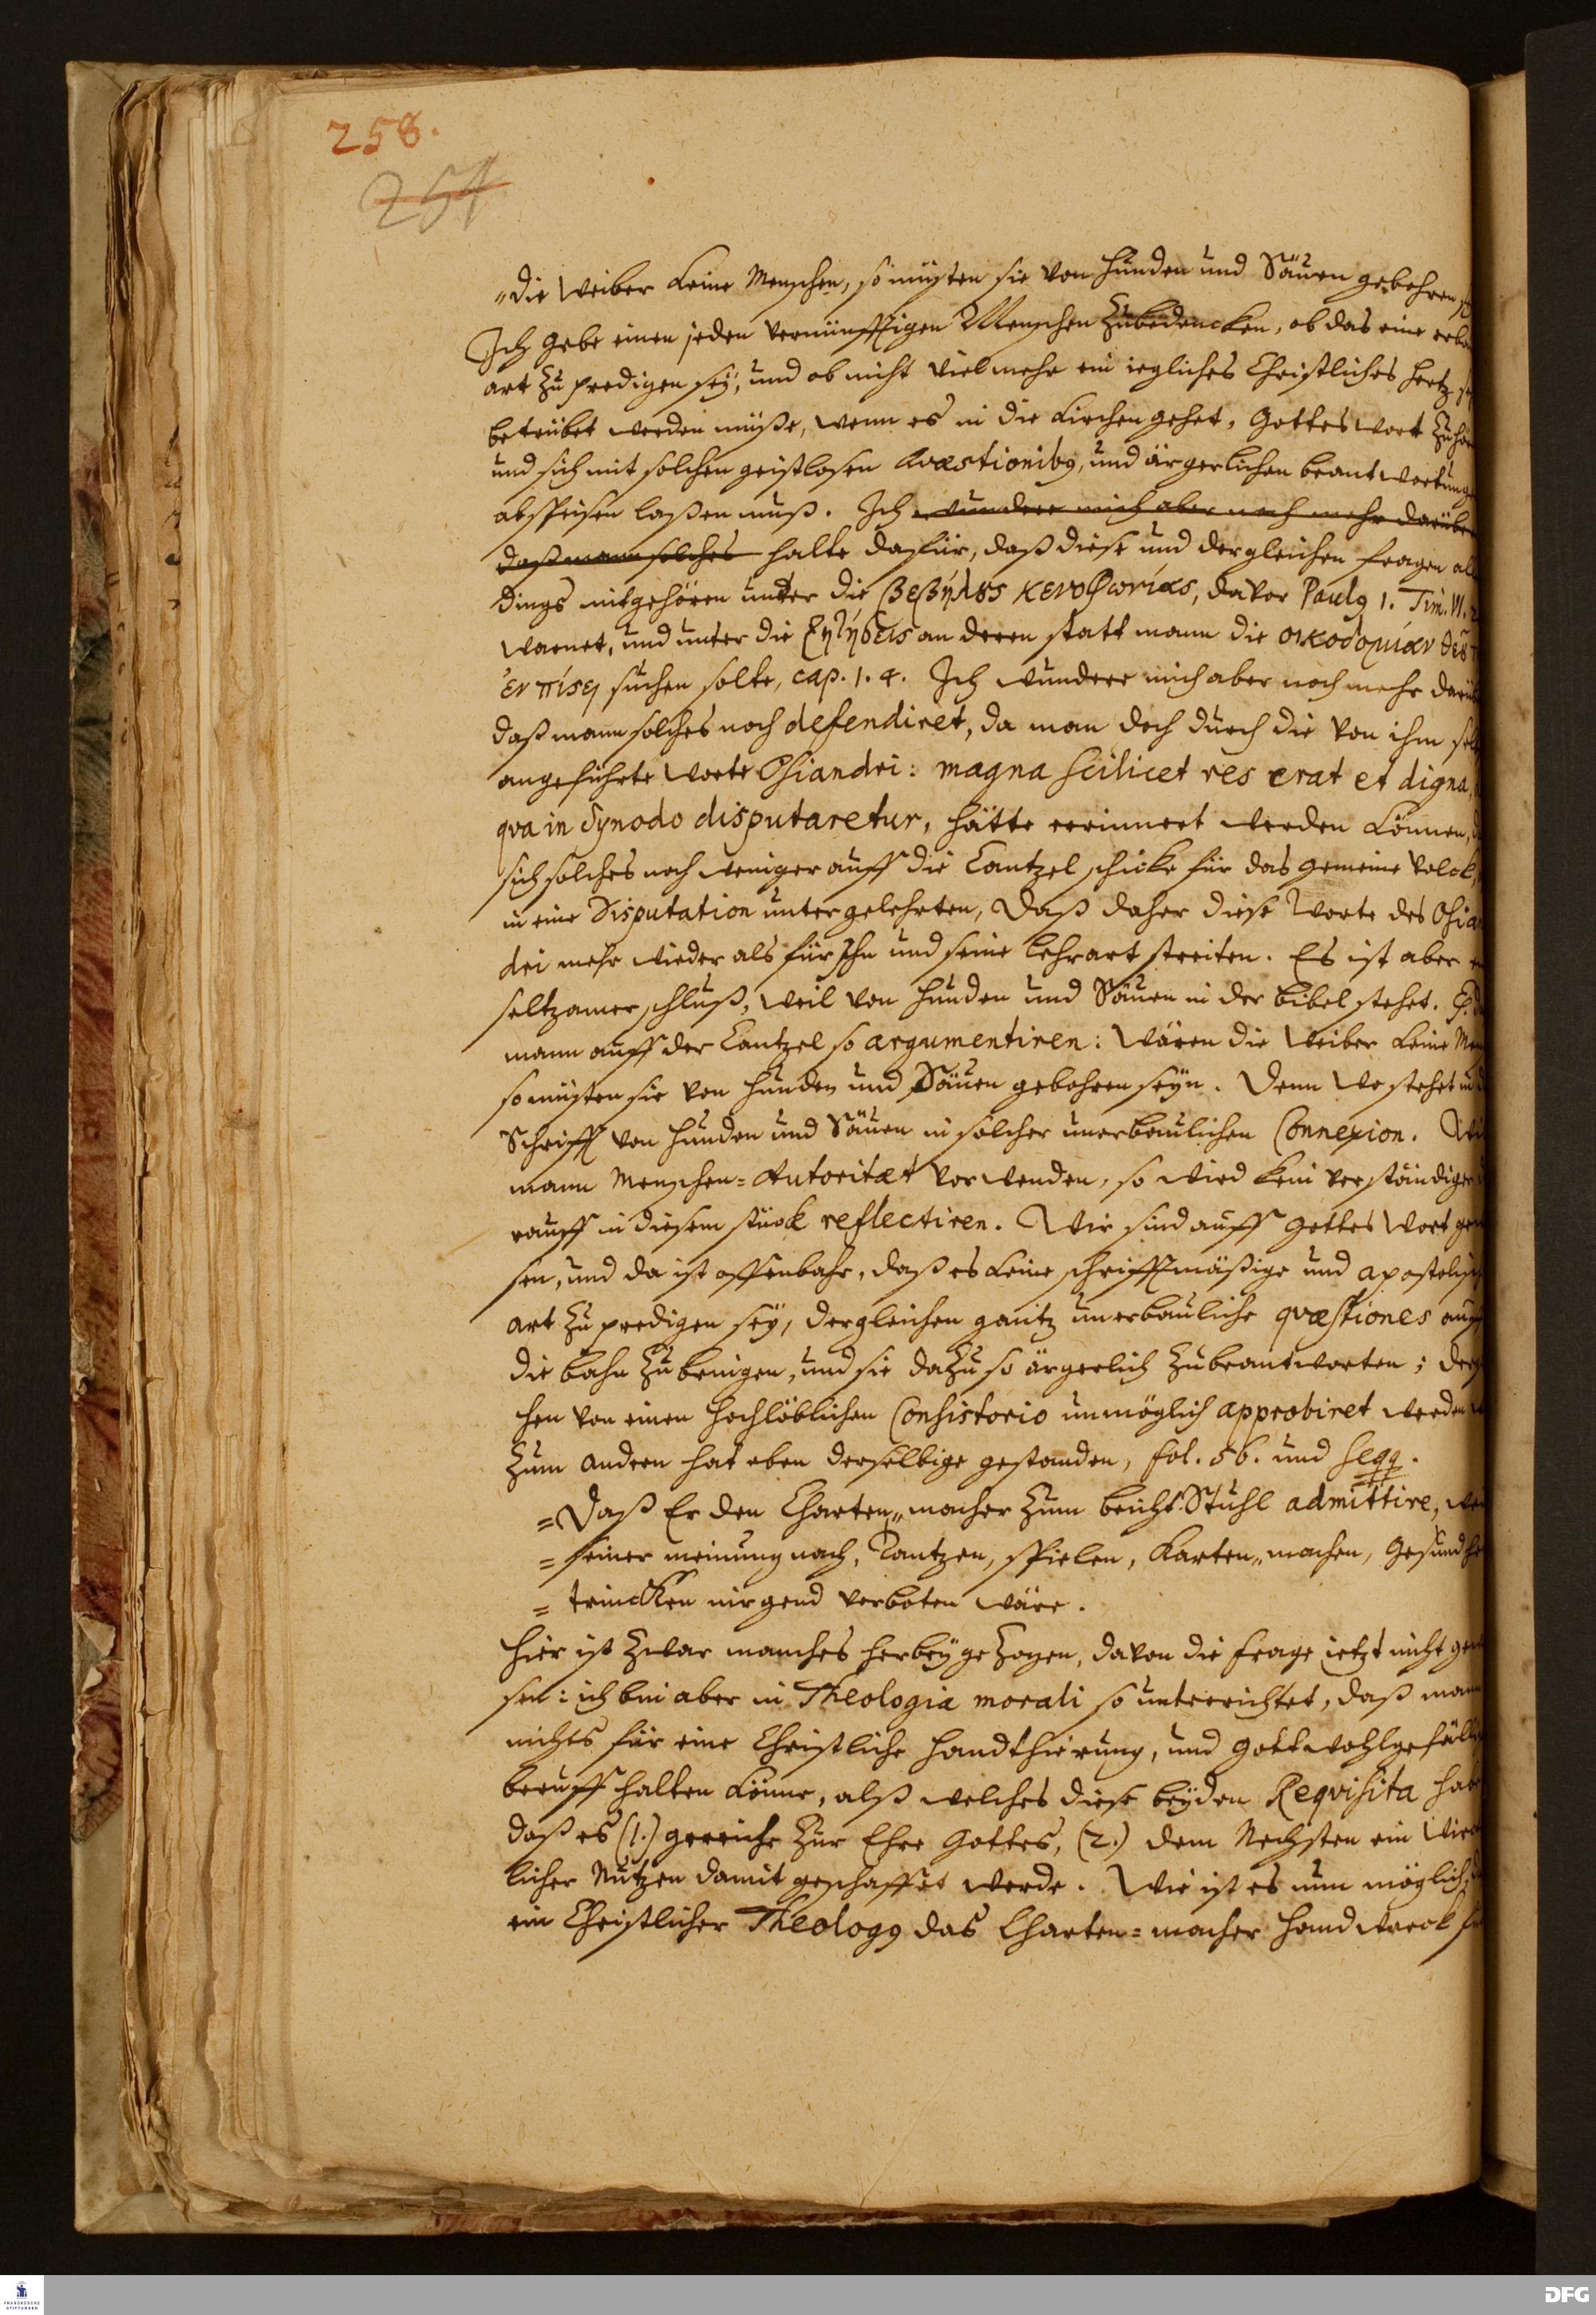 258.
254
„die Weiber keine Menschen, so müsten sie von Hunden und Säuen gebohren
Ich gebe einen jeden vernünfftigen Menschen zubedencken, ob das eine
art zu predigen sey, und ob nicht vielmehr ein iegliches Christliches Hertz
betrübet werden müße, wenn es in die Kirchen gehet, Gottes wort
und sich mit solchen geistlosen Quæstionibꝰ, und ärgerlichen
abspeisen laßen muß. Ich wundere mich aber noch mehr
daß mann solches halte dafür, daß diese und dergleichen fragen
dings mitgehören unter die βεβήλȣς κενοφωνίας, davor Paulꝰ 1. Tim. VI.
warnet, und unter die ζητήσεις an deren statt mann die οικοδομίαν
ἐν πίςει suchen solte, cap. 1. 4. Ich wundere mich aber noch mehr
daß mann solches noch defendiret, da man doch durch die von ihm
angeführte worte Osiandri: magna scilicet res erat et digna,
qva in Synodo disputaretur, hätte erinnert werden können,
sich solches noch weniger auff die Cantzel schicke für das gemeine Volck,
in eine Disputation unter gelehrten, Daß daher diese Worte des
dri mehr wieder als für Ihn und seine lehrart streiten. Es ist aber
seltzamer schluß, weil von Hunden und Säuen in der bibel stehet.
mann auff der Cantzel so argumentiren: Wären die Weiber keine
so müsten sie von Hunden und Säuen gebohren seyn. Denn wo stehet
Schrifft von Hunden und Säuen in solcher unerbaulichen Connexion.
mann Menschen-Autoritæt vorwenden, so wird kein verständiger
rauff in diesem stück reflectiren. Wir sind auff Gottes Wort
sen, und da ist offenbahr, daß es keine schrifftmäßige und
art zu predigen sey, dergleichen gantz unerbauliche qvæstiones
die bahn zu bringen, und sie dazu so ärgerlich zubeantworten;
chen von einen Hochlöblichen Consistorio unmöglich approbiret werden
Zum andern hat eben derselbige gestanden, fol. 56. und seqq.
= Daß Er den Charten„macher zum beicht-Stuhl admittire,
= seiner meinung nach, Tantzen, spielen, Karten„machen,
= trincken nirgend verboten wäre.
Hier ist zwar manches herbey gezogen, davon die frage ietzt nicht
sen: ich bin aber in Theologia morali so unterrichtet, daß mann
nichts für eine Christliche Handthierung, und
beruff halten könne, alß welches diese beyden Reqvisita
daß es (1.) gereiche zur Ehre Gottes, (2.) dem Nechsten ein
licher Nutzen damit geschaffet werde. Wie ist es nun möglich,
ein Christlicher Theologꝰ das Charten-macher Handwerck
FRANCKESCHE STIFTUNGEN
DFG